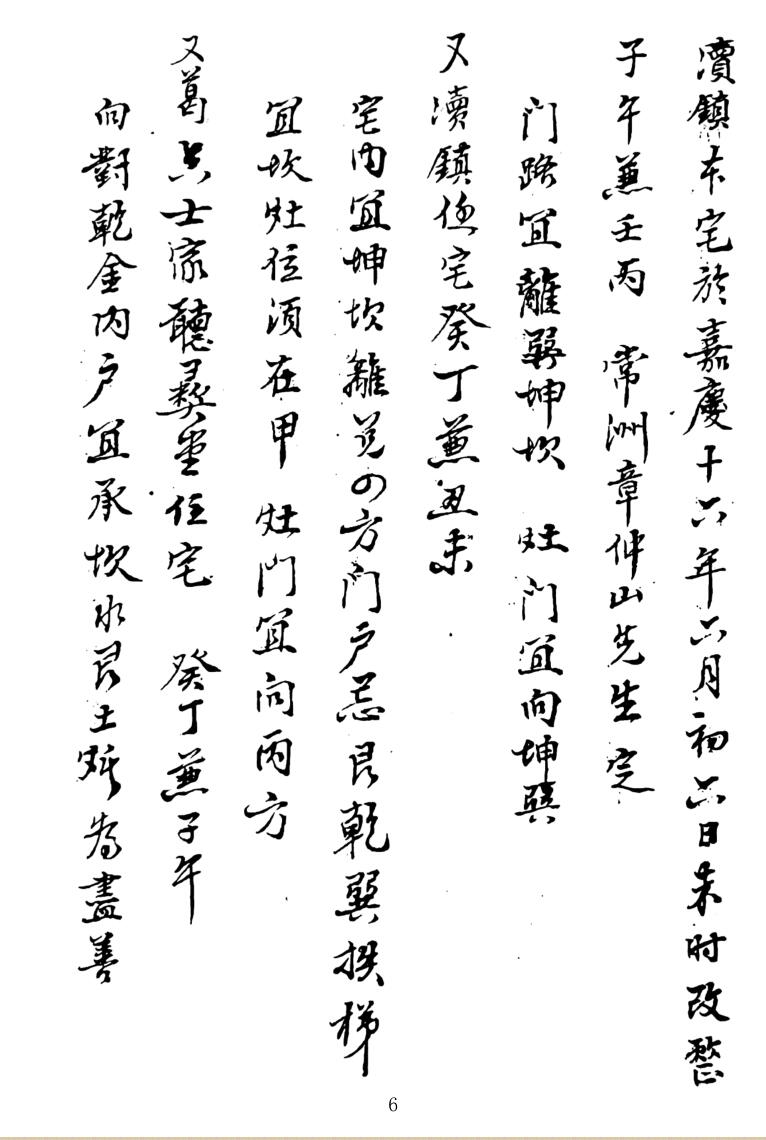 瀆鎮本宅於嘉慶十六年六月初六日未时改整
子午兼壬丙 常洲章仲山先生定
門路宜離巽坤坎 灶门宜向坤巽
又瀆鎮住宅癸丁兼丑未
宅內宜坤坎離兌四方门户忌艮乾巽扶梯
宜坎灶位須在甲 灶门宜向丙方
又葛士家聽彝堂住宅 癸丁兼子午
向對乾金內户宜承坎水艮土為盡善
6